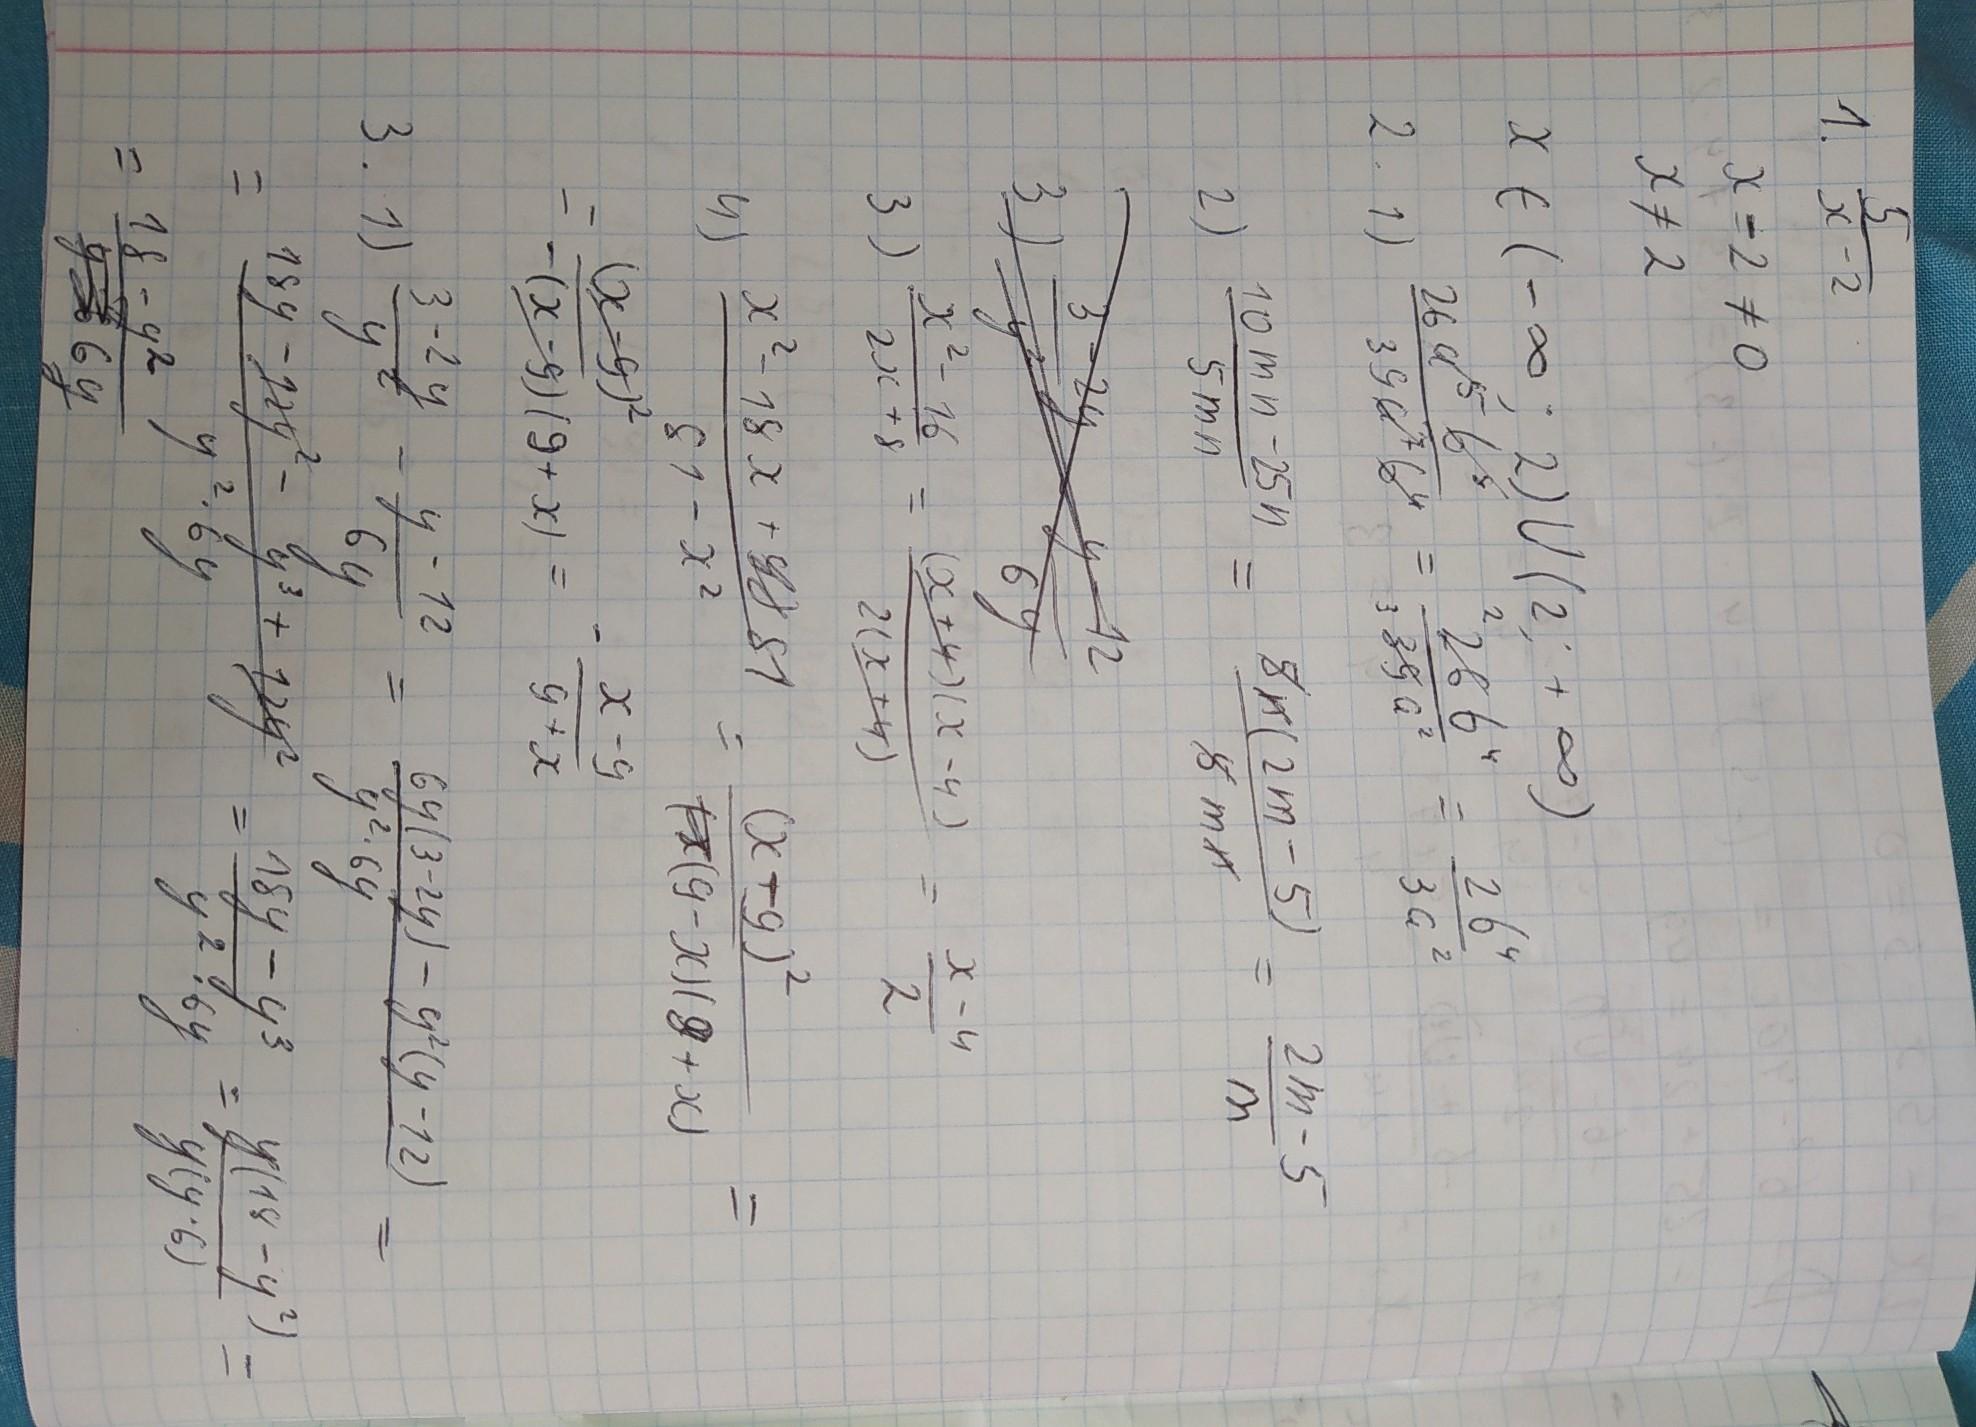 1. 5/(x-2)
x-2≠0
x≠2
x∈(-∞; 2)U(2; +∞)
2. 1) 26a⁵b⁸/39a⁷b⁴ = ²26b⁴/³39a² = 2b⁴/3a²
2) (10mn-25n)/5mn = 5n(2m-5)/5mn = (2m-5)/m
3) (3-2y)/y² (y-12)/6y
3) (x²-16)/(2x+8) = (x+4)(x-4)/2(x+4) = (x-4)/2
4) (x²-18x+81)/(81-x²) = (x-9)²/(9-x)(9+x) =
= (x-9)²/-(x-9)(9+x) = -(x-9)/(9+x)
3. 1) (3-2y)/y² - (y-12)/6y = (6y(3-2y)-y²(y-12))/(y²·6y) =
= (18y-12y²-y³+12y²)/(y²·6y) = (18y-y³)/(y²·6y) = y(18-y²)/y(y·6) =
= (18-y²)/6y